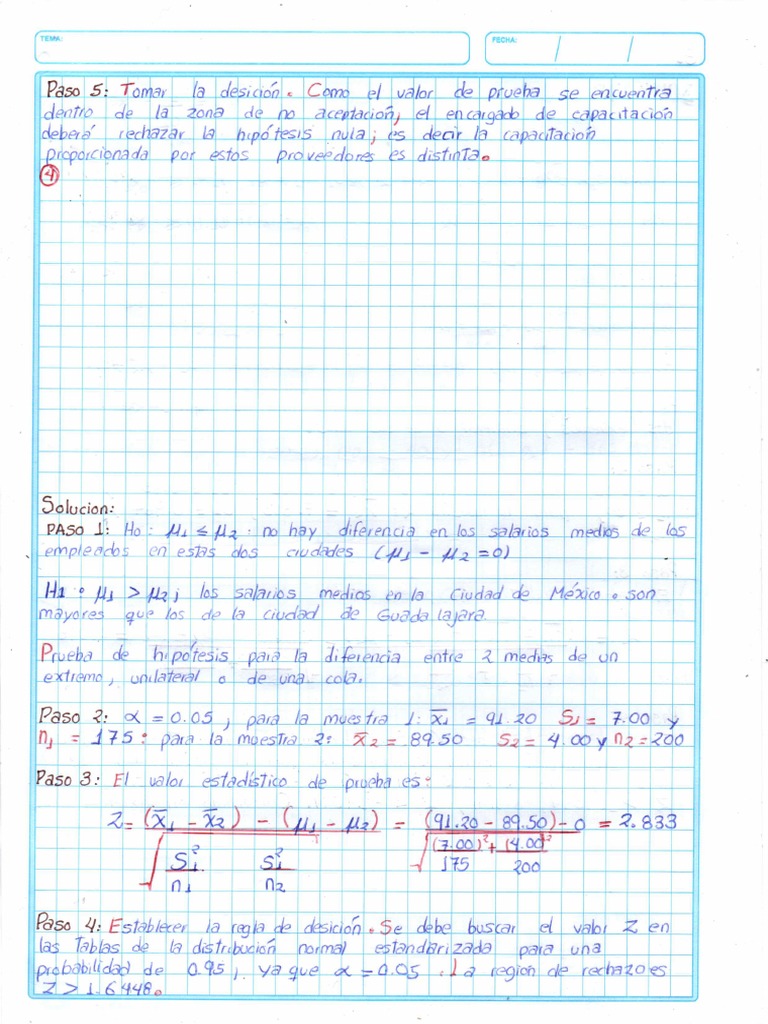 TEMA:
FECHA:
Paso 5: Tomar la desición. Como el valor de prueba se encuentra
dentro de la zona de no aceptación, el encargado de capacitación
deberá rechazar la hipótesis nula; es decir la capacitación
proporcionada por estos proveedores es distinta.
4
Solucion:
PASO 1: Ho: μ1 ≤ μ2 · no hay diferencia en los salarios medios de los
empleados en estas dos ciudades (μ1 - μ2 = 0)
H1: μ1 > μ2; los salarios medios en la Ciudad de México. son
mayores que los de la ciudad de Guadalajara.
Prueba de hipótesis para la diferencia entre 2 medias de un
extremo, unilateral o de una cola.
Paso 2: α = 0.05, para la muestra 1: x̄1 = 91.20 S1 = 7.00 y
n1 = 175: para la muestra 2: x̄2 = 89.50 S2 = 4.00 y n2 = 200
Paso 3: El valor estadístico de prueba es:
Z = (x̄1 - x̄2) - (μ1 - μ2) = (91.20 - 89.50) - 0 = 2.833
S1² S1² (7.00)² + (4.00)²
n1 n2 175 200
Paso 4: Establecer la regla de desición. Se debe buscar el valor Z en
las Tablas de la distribución normal estandarizada para una
probabilidad de 0.95, ya que α = 0.05. La region de rechazo es
Z > 1.6448.